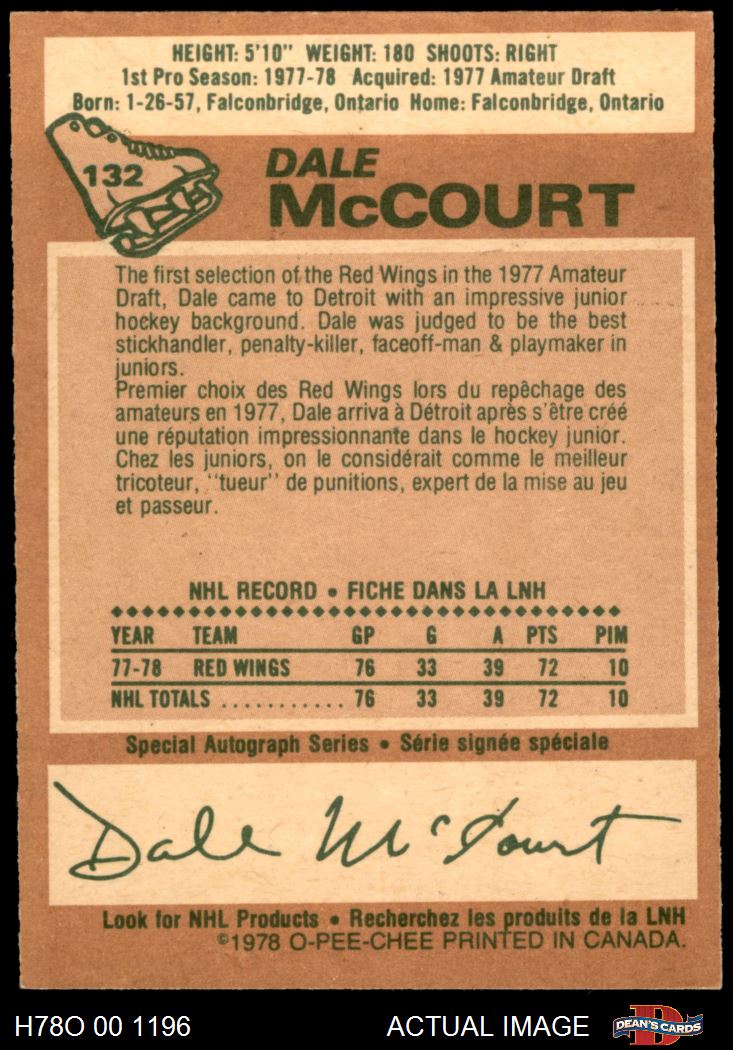 HEIGHT: 5'10" WEIGHT: 180 SHOOTS: RIGHT
1st Pro Season: 1977-78 Acquired: 1977 Amateur Draft
Born: 1-26-57, Falconbridge, Ontario Home: Falconbridge, Ontario
132
DALE
McCOURT
The first selection of the Red Wings in the 1977 Amateur
Draft, Dale came to Detroit with an impressive junior
hockey background. Dale was judged to be the best
stickhandler, penalty-killer, faceoff-man & playmaker in
juniors.
Premier choix des Red Wings lors du repêchage des
amateurs en 1977, Dale arriva à Détroit après s'être créé
une réputation impressionnante dans le hockey junior.
Chez les juniors, on le considérait comme le meilleur
tricoteur, "tueur" de punitions, expert de la mise au jeu
et passeur.
NHL RECORD • FICHE DANS LA LNH
YEAR TEAM GP G A PTS PIM
77-78 RED WINGS 76 33 39 72 10
NHL TOTALS ........... 76 33 39 72 10
Special Autograph Series • Série signée spéciale
Dale McCourt
Look for NHL Products • Recherchez les produits de la LNH
©1978 O-PEE-CHEE PRINTED IN CANADA.
H78O 00 1196 ACTUAL IMAGE DEAN'S CARDS